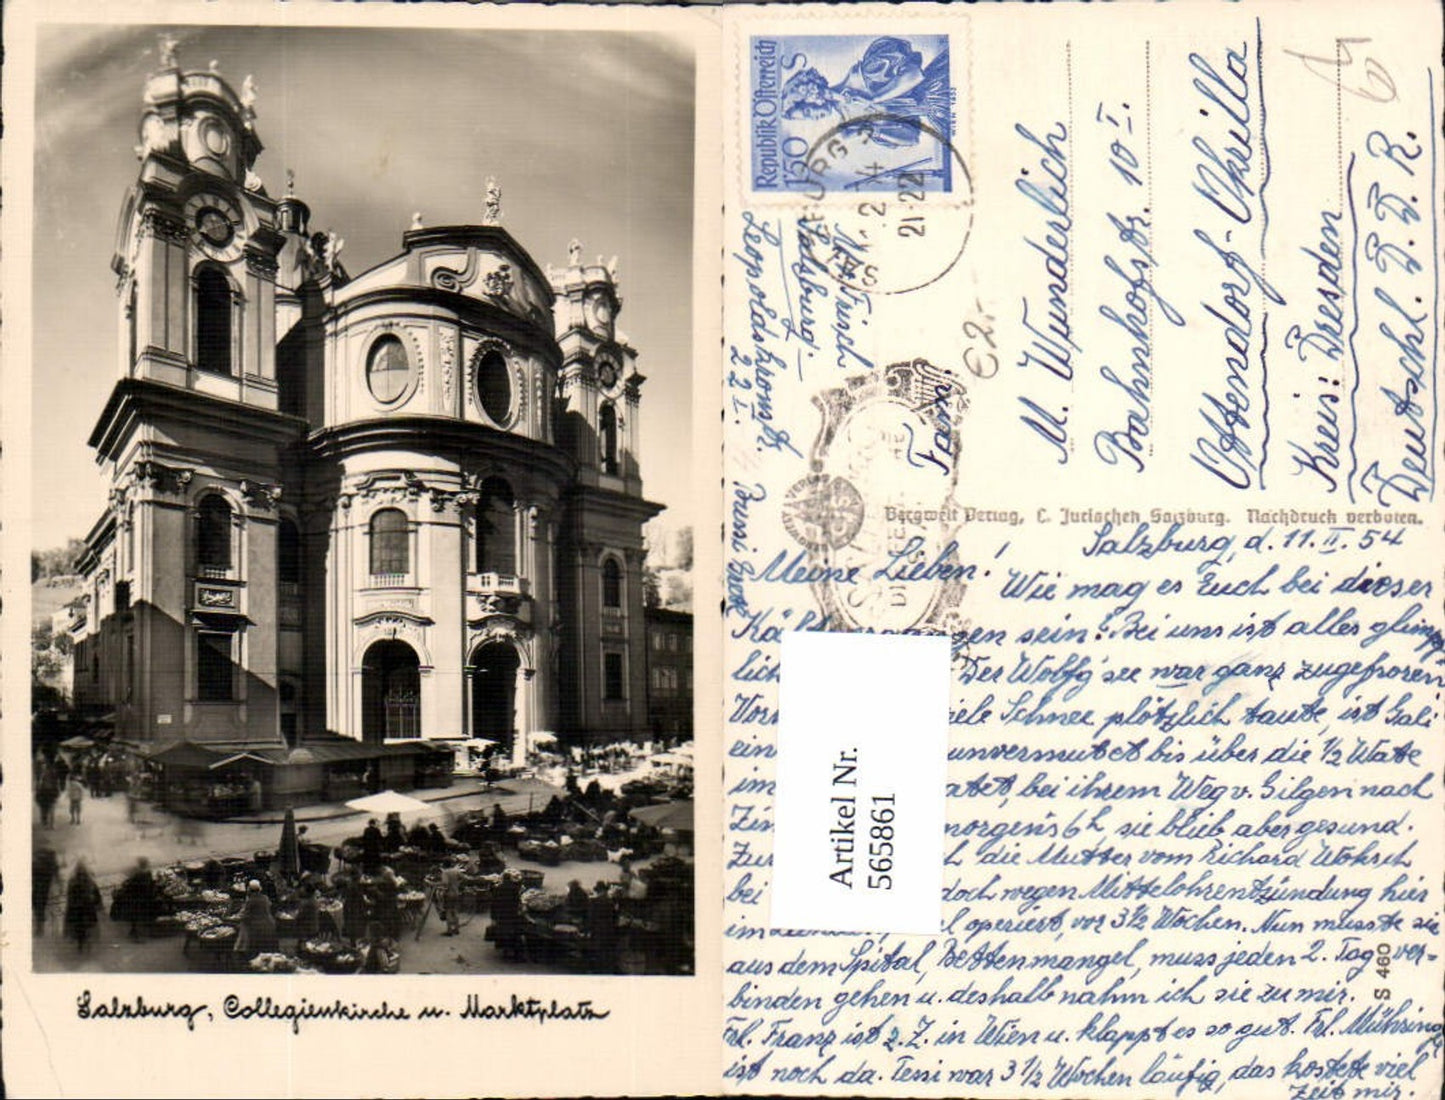 Salzburg, Collegienkirche u. Marktplatz
Republik Österreich
1'50 S
SALZBURG
21-22
Salzburg.
Leopoldskronstr.
22 I.
Fam.
M. Wunderlich
Bahnhofstr. 10 I.
Ottendorf-Okrilla
Kreis: Dresden
Deutschl. D. D. R.
€2.-
Bergwelt Verlag, C. Jurischek Salzburg. Nachdruck verboten.
S 460
Artikel Nr.
565861
Salzburg, d. 11. II. 54
Meine Lieben!
Wie mag es Euch bei dieser
gen sein? Bei uns ist alles glimpf
lich Der Wolfg'see war ganz zugefroren
viele Schnee plötzlich taute, ist Gali
ein unvermutet bis über die 1/2 Wate
im bei ihrem Weg v. Gilgen nach
morgens 6h, sie blieb aber gesund.
die Mutter vom Richard
bei doch wegen Mittelohrentzündung hier
im operiert, vor 3 1/2 Wochen. Nun musste sie
aus dem Spital, Bettenmangel, muss jeden 2. Tag ver=
binden gehen u. deshalb nahm ich sie zu mir.
Frl. Franz ist z. Z. in Wien u. klappt es so gut. Frl. Mühring
ist noch da. Tessi war 3 1/2 Wochen läufig, das kostete viel
Zeit mir.